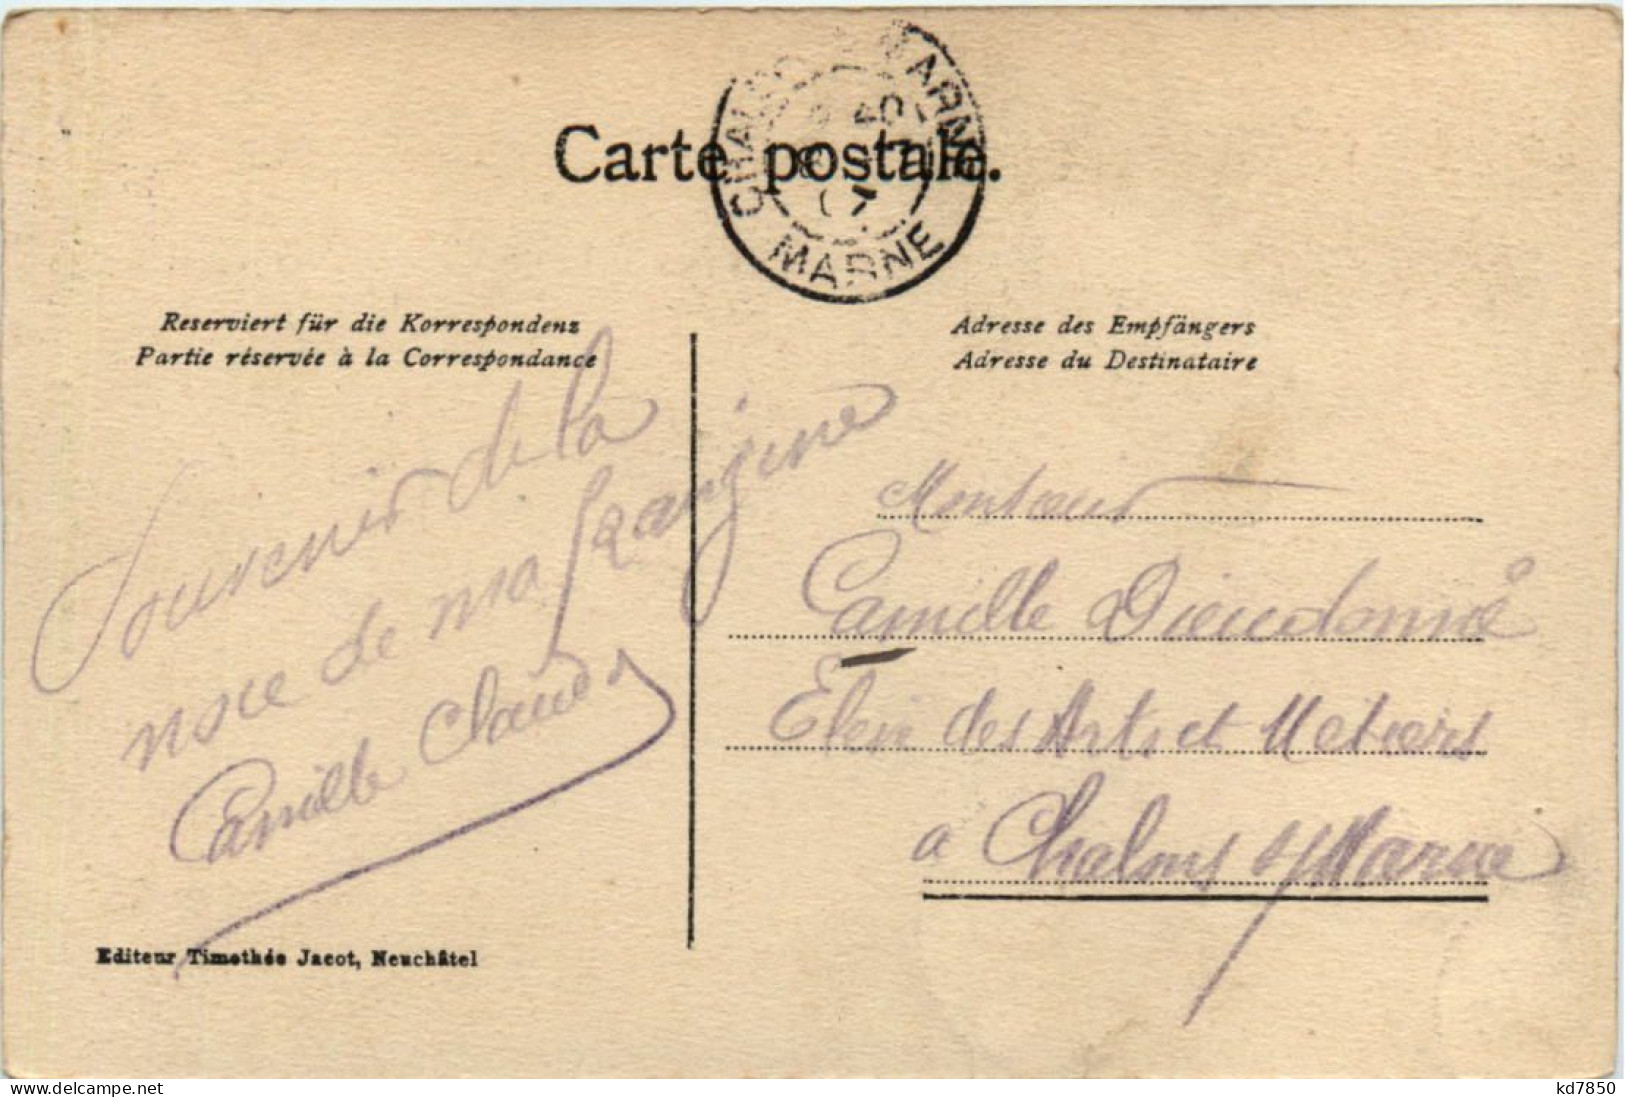 Carte postale.
CHALONS S MARNE
40
8 7
07
MARNE
Reserviert für die Korrespondenz
Partie réservée à la Correspondance
Adresse des Empfängers
Adresse du Destinataire
Souvenir de la
noce de ma frangine
Camille Claude
Monsieur
Camille Dieudonné
Elève des Arts et Metiers
a Chalons s/Marne
Editeur Timothée Jacot, Neuchâtel
www.delcampe.net
kd7850